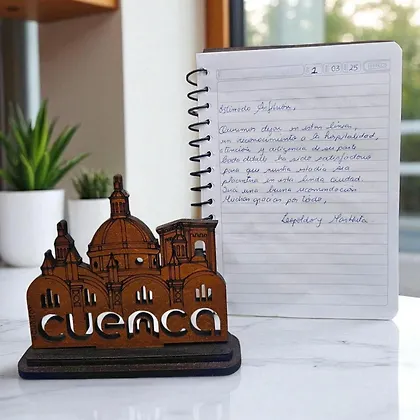 2 03 25
Estimado Anfitrión,
Queremos dejar en estas líneas,
un reconocimiento a la hospitalidad,
atención y diligencia de su parte
Cada detalle ha sido satisfactorio
para que nuestra estadía sea
placentera en esta linda ciudad.
una buena recomendación
Muchas gracias por todo,
Leopoldo y
cuenca